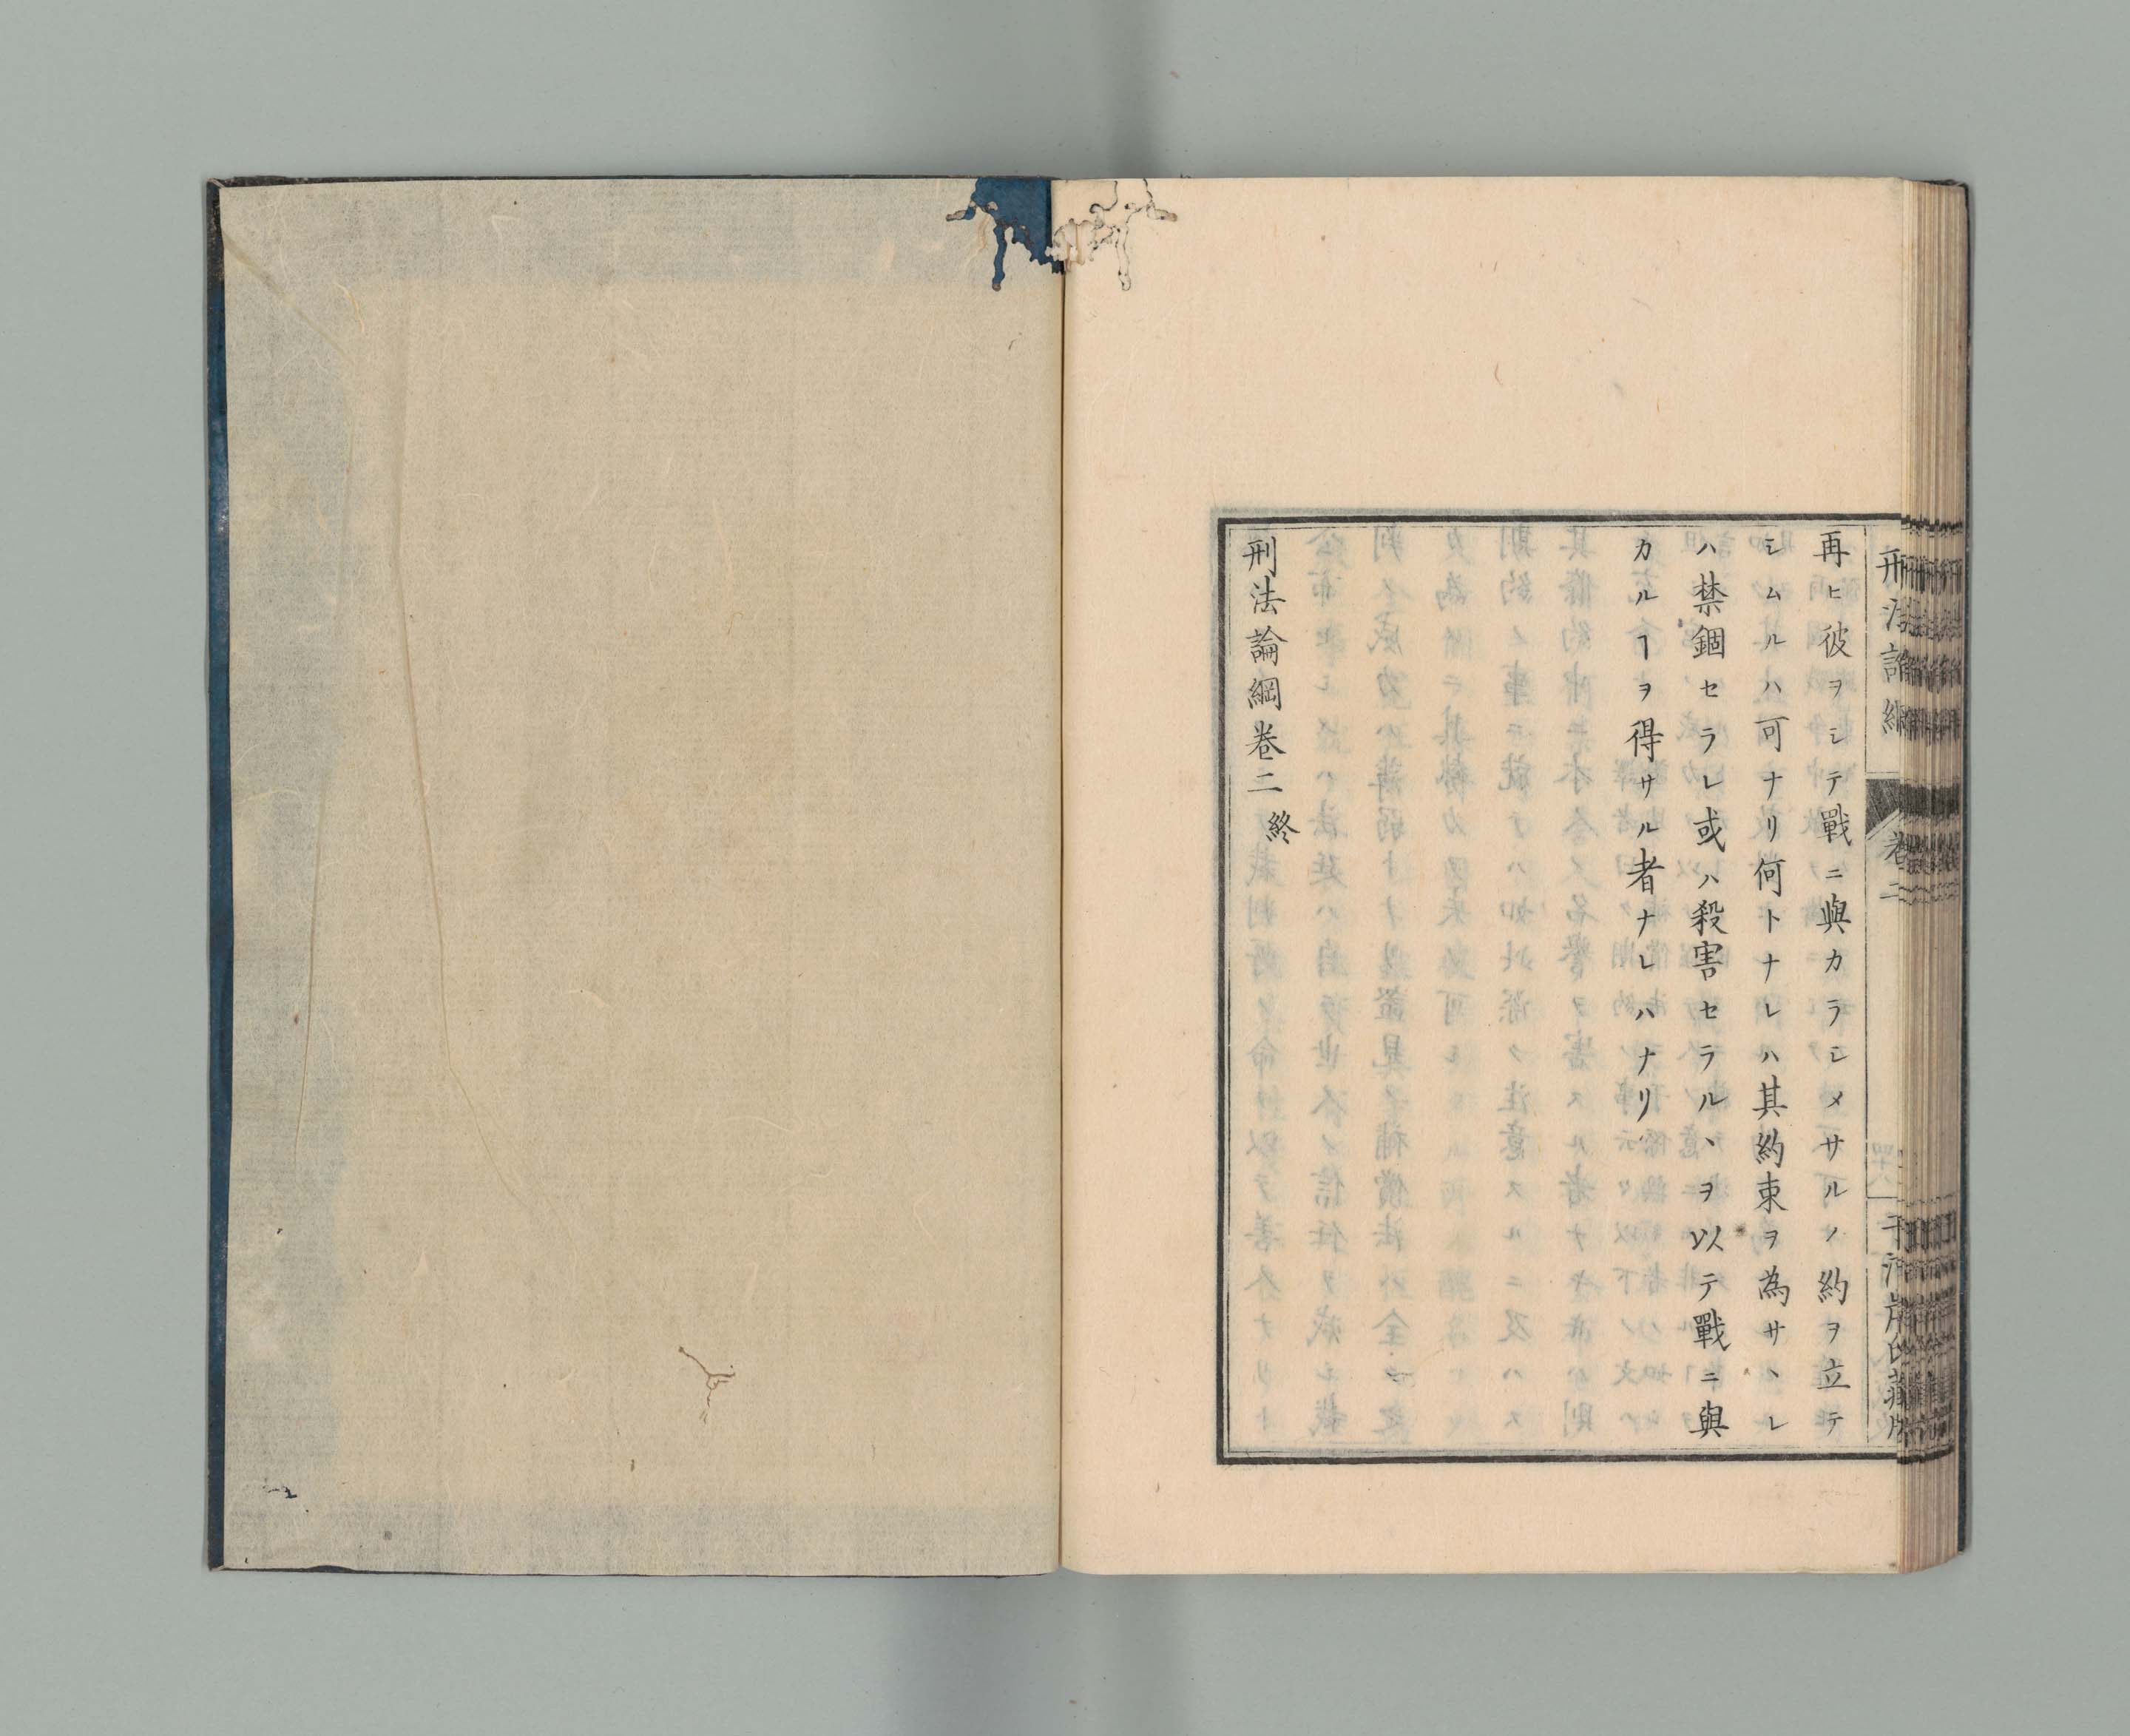 再ヒ彼ヲシテ戰ニ與カラシメサルノ約ヲ立テ
シムルハ可ナリ何トナレハ其約束ヲ為サヽレ
ハ禁錮セラレ或ハ殺害セラルヽヲ以テ戰ニ與
カルヿヲ得サル者ナレハナリ
刑法論綱卷二 終